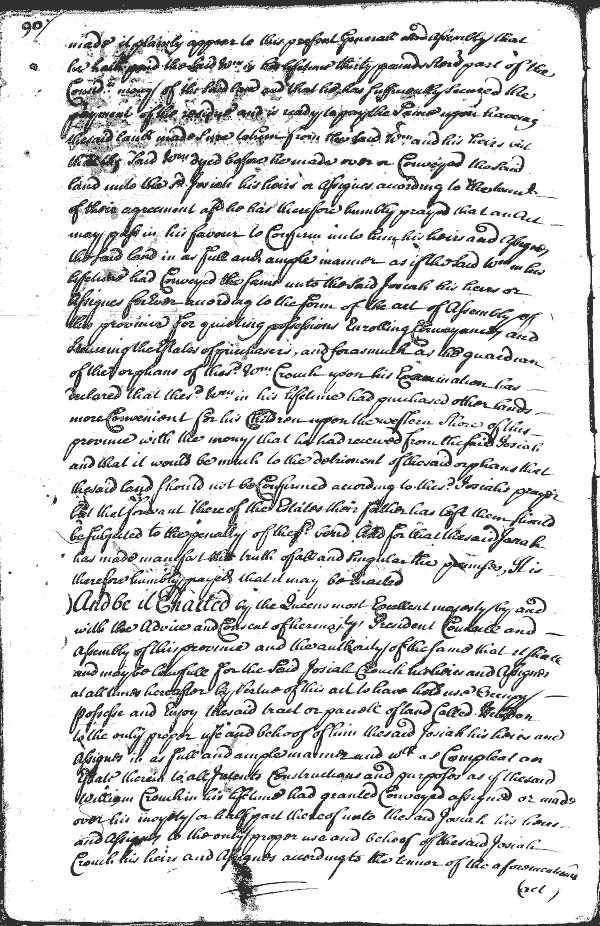 90
made it plainly appear to this present Generall Assembly that
he hath paid the said Wm in his lifetime thirty pounds part of the
Consid. mony of the said land and that he has sufficiently secured the
payment of the residue and is ready to pay the same upon haveing
the said lands made sure to him from the said Wm and his heirs
that the said Wm dyed before he made over or Conveyed the said
land unto the sd Josiah his heirs or assignes according to the tenour
of their agreement and he has therefore humbly prayed that an Act
may pass in his favour to Confirm unto him his heirs and Assignes
the said land in as full and ample manner as if the said Wm in his
lifetime had Conveyed the same unto the said Josiah his heirs or
Assignes forever according to the form of the act of Assembly of
this province for quieting possessions Enrolling Conveyances and
Secureing the Estates of purchasers, and forasmuch as the guardian
of the orphans of the sd Wm Crouch upon his Examination has
declared that the sd Wm in his lifetime had purchased other lands
more Convenient for his Children upon the western Shore of this
province with the mony that he had received from the said Josiah
and that it would be much to the detriment of the said orphans that
the said land should not be Confirmed according to the sd Josiahs prayer
but that for want thereof the Estates their father has left them should
be subjected to the penalty of the sd bond And for that the said Josiah
has made manifest the truth of all and singular the premises, It is
therefore humbly prayed that it may be Enacted
And be it Enacted by the Queens most Excellent majesty by and
with the Advice and Consent of her majtys President Councill and
Assembly of this province and the authority of the same that it shall
and may be lawfull for the said Josiah Crouch his heires and Assignes
at all times hereafter by Vertue of this act to have hold use Occupy
possess and Enjoy the said tract or parcell of land Called
to the only proper use and behoof of him the said Josiah his heirs and
Assignes in as full and ample manner and as Compleat an
Estate therein to all Intents Constructions and purposes as if the said
William Crouch in his lifetime had granted Conveyed assigned or made
over his moyety or half part thereof unto the said Josiah his heirs
and Assignes to the only proper use and behoof of the said Josiah
Crouch his heirs and Assignes according to the tenour of the aforementioned
(act)